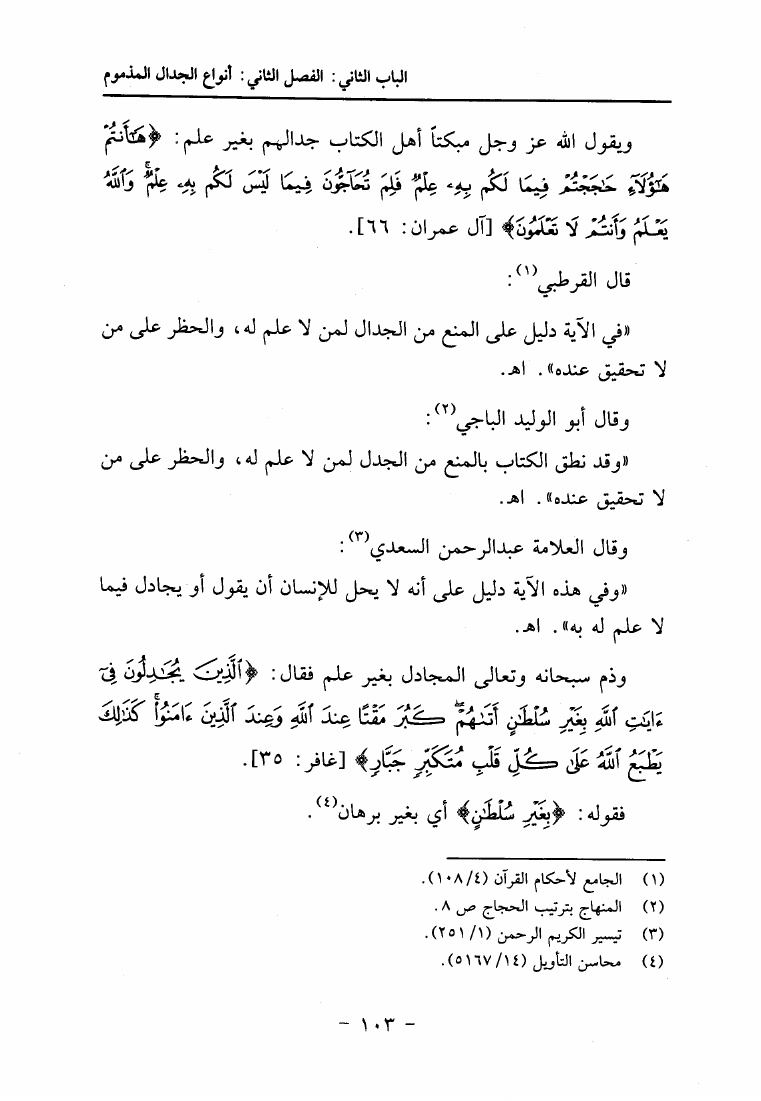 الباب الثاني: الفصل الثاني: أنواع الجدال المذموم
ويقول الله عز وجل مبكتاً أهل الكتاب جدالهم بغير علم: ﴿هَٰٓأَنتُمْ
هَٰٓؤُلَآءِ حَٰجَجْتُمْ فِيمَا لَكُم بِهِۦ عِلْمٌ فَلِمَ تُحَآجُّونَ فِيمَا لَيْسَ لَكُم بِهِۦ عِلْمٌ ۚ وَٱللَّهُ
يَعْلَمُ وَأَنتُمْ لَا تَعْلَمُونَ﴾ [آل عمران: ٦٦].
قال القرطبي(١):
«في الآية دليل على المنع من الجدال لمن لا علم له، والحظر على من
لا تحقيق عنده». اهـ.
وقال أبو الوليد الباجي(٢):
«وقد نطق الكتاب بالمنع من الجدل لمن لا علم له، والحظر على من
لا تحقيق عنده». اهـ.
وقال العلامة عبدالرحمن السعدي(٣):
«وفي هذه الآية دليل على أنه لا يحل للإنسان أن يقول أو يجادل فيما
لا علم له به». اهـ.
وذم سبحانه وتعالى المجادل بغير علم فقال: ﴿ٱلَّذِينَ يُجَٰدِلُونَ فِىٓ
ءَايَٰتِ ٱللَّهِ بِغَيْرِ سُلْطَٰنٍ أَتَىٰهُمْ ۖ كَبُرَ مَقْتًا عِندَ ٱللَّهِ وَعِندَ ٱلَّذِينَ ءَامَنُوا۟ ۚ كَذَٰلِكَ
يَطْبَعُ ٱللَّهُ عَلَىٰ كُلِّ قَلْبِ مُتَكَبِّرٍ جَبَّارٍ﴾ [غافر: ٣٥].
فقوله: ﴿بِغَيْرِ سُلْطَٰنٍ﴾ أي بغير برهان(٤).
(١) الجامع لأحكام القرآن (١٠٨/٤).
(٢) المنهاج بترتيب الحجاج ص ٨.
(٣) تيسير الكريم الرحمن (٢٥١/١).
(٤) محاسن التأويل (٥١٦٧/١٤).
- ١٠٣ -